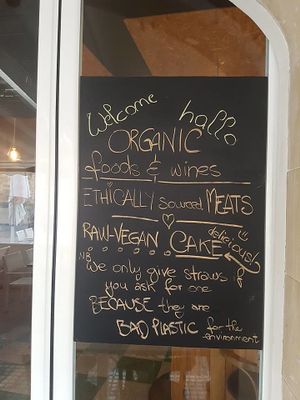 Welcome hallo
ORGANIC
foods & wines
ETHICALLY Sourced MEATS
delicious!
RAW-VEGAN CAKE
NB
we only give straws if
you ask for one
BECAUSE they are
BAD PLASTIC for the
environment